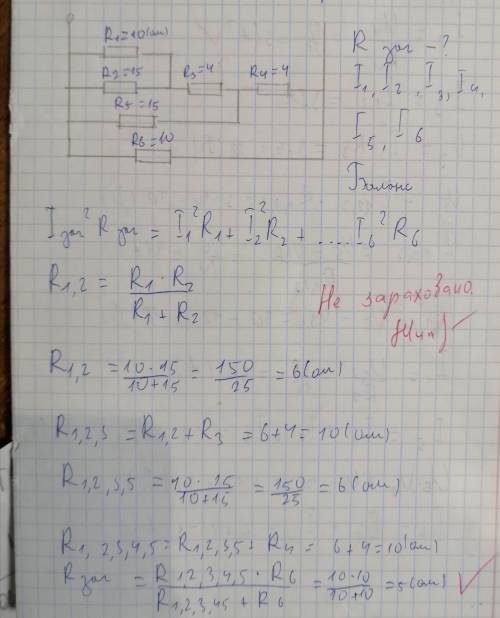 R₁=10(ом)
R₂=15
R₃=4
R₄=4
R₅=15
R₆=10
R заг - ?
I₁, I₂, I₃, I₄,
I₅, I₆
Баланс
I заг² R заг = I₁² R₁ + I₂² R₂ + ..... I₆² R₆
R₁,₂ = R₁ · R₂ / R₁ + R₂
Не зараховано.
R₁,₂ = 10 · 15 / 10+15 = 150 / 25 = 6(ом)
R₁,₂,₃ = R₁,₂ + R₃ = 6+4= 10(ом)
R₁,₂,₃,₅ = 10 · 15 / 10+15 = 150 / 25 = 6(ом)
R₁, ₂,₃,₄,₅ = R₁,₂,₃,₅ + R₄ = 6+4=10(ом)
R заг = R₁,₂,₃,₄,₅ · R₆ / R₁,₂,₃,₄₅ + R₆ = 10·10 / 10+10 = 5(ом)